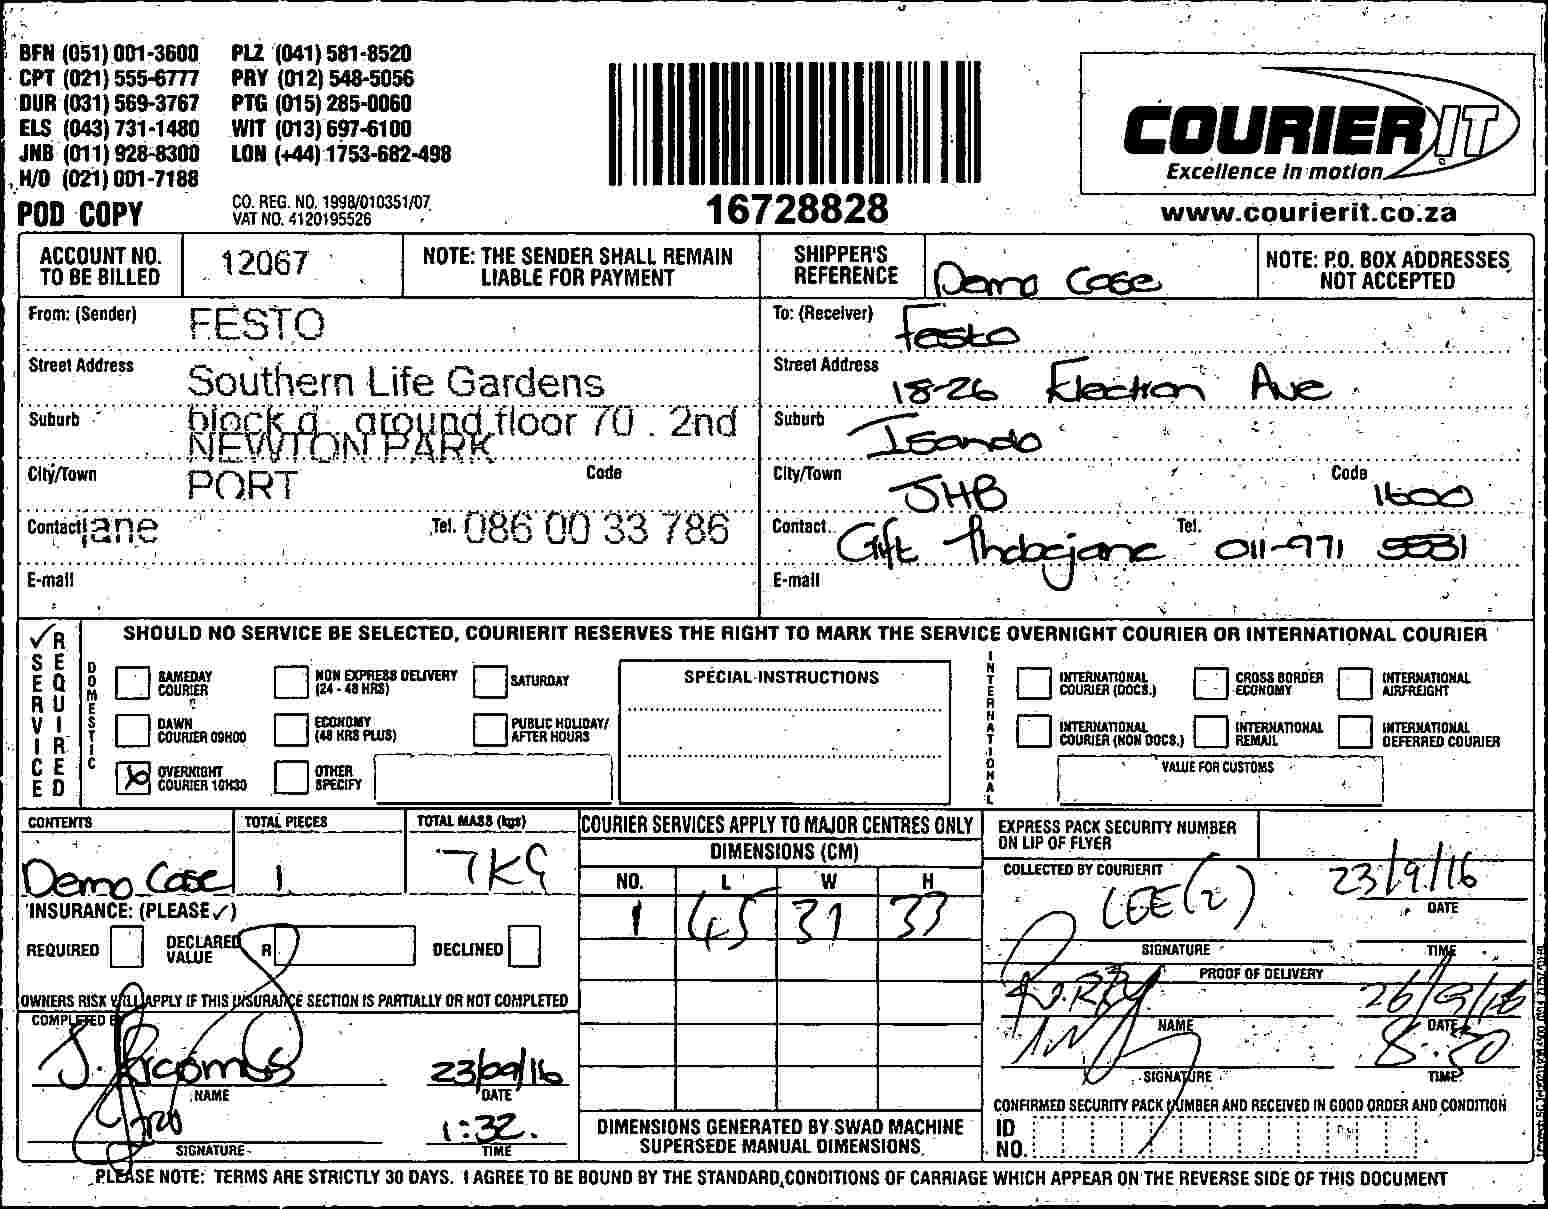 BFN (051) 001-3600 PLZ (041) 581-8520
CPT (021) 555-6777 PRY (012) 548-5056
DUR (031) 569-3767 PTG (015) 285-0060
ELS (043) 731-1480 WIT (013) 697-6100
JNB (011) 928-8300 LON (+44) 1753-682-498
H/O (021) 001-7188
POD COPY
CO. REG. NO. 1998/010351/07
VAT NO. 4120195526
16728828
COURIER IT
Excellence in motion
www.courierit.co.za
ACCOUNT NO. TO BE BILLED 12067
NOTE: THE SENDER SHALL REMAIN LIABLE FOR PAYMENT
SHIPPER'S REFERENCE Demo Case
NOTE: P.O. BOX ADDRESSES NOT ACCEPTED
From: (Sender) FESTO
Street Address Southern Life Gardens
Suburb block a ground floor 70 . 2nd
NEWTON PARK
City/Town PORT Code
Contact jane Tel. 086 00 33 786
E-mail
To: (Receiver) Festo
Street Address 18-26 Electron Ave
Suburb Isando
City/Town JHB Code 1600
Contact Gift Thobejane Tel. 011-971 5531
E-mail
✓ SERVICE REQUIRED
SHOULD NO SERVICE BE SELECTED, COURIERIT RESERVES THE RIGHT TO MARK THE SERVICE OVERNIGHT COURIER OR INTERNATIONAL COURIER
DOMESTIC
SAMEDAY COURIER
NON EXPRESS DELIVERY (24 - 48 HRS)
SATURDAY
DAWN COURIER 09H00
ECONOMY (48 HRS PLUS)
PUBLIC HOLIDAY/ AFTER HOURS
OVERNIGHT COURIER 10H30
OTHER SPECIFY
SPECIAL INSTRUCTIONS
INTERNATIONAL
INTERNATIONAL COURIER (DOCS.)
CROSS BORDER ECONOMY
INTERNATIONAL AIRFREIGHT
INTERNATIONAL COURIER (NON DOCS.)
INTERNATIONAL REMAIL
INTERNATIONAL DEFERRED COURIER
VALUE FOR CUSTOMS
CONTENTS Demo Case
TOTAL PIECES 1
TOTAL MASS (kgs) 7KG
INSURANCE: (PLEASE ✓)
REQUIRED
DECLARED VALUE R
DECLINED
OWNERS RISK WILL APPLY IF THIS INSURANCE SECTION IS PARTIALLY OR NOT COMPLETED
COMPLETED BY
NAME
23/09/16 DATE
SIGNATURE
1:32. TIME
COURIER SERVICES APPLY TO MAJOR CENTRES ONLY
DIMENSIONS (CM)
NO. L W H
1 45 31 33
DIMENSIONS GENERATED BY SWAD MACHINE
SUPERSEDE MANUAL DIMENSIONS
EXPRESS PACK SECURITY NUMBER
ON LIP OF FLYER
COLLECTED BY COURIERIT
LEE (2) 23/9/16
DATE
SIGNATURE TIME
PROOF OF DELIVERY
26/9/16
NAME DATE
8:50
SIGNATURE TIME
CONFIRMED SECURITY PACK NUMBER AND RECEIVED IN GOOD ORDER AND CONDITION
ID NO.
PLEASE NOTE: TERMS ARE STRICTLY 30 DAYS. I AGREE TO BE BOUND BY THE STANDARD CONDITIONS OF CARRIAGE WHICH APPEAR ON THE REVERSE SIDE OF THIS DOCUMENT